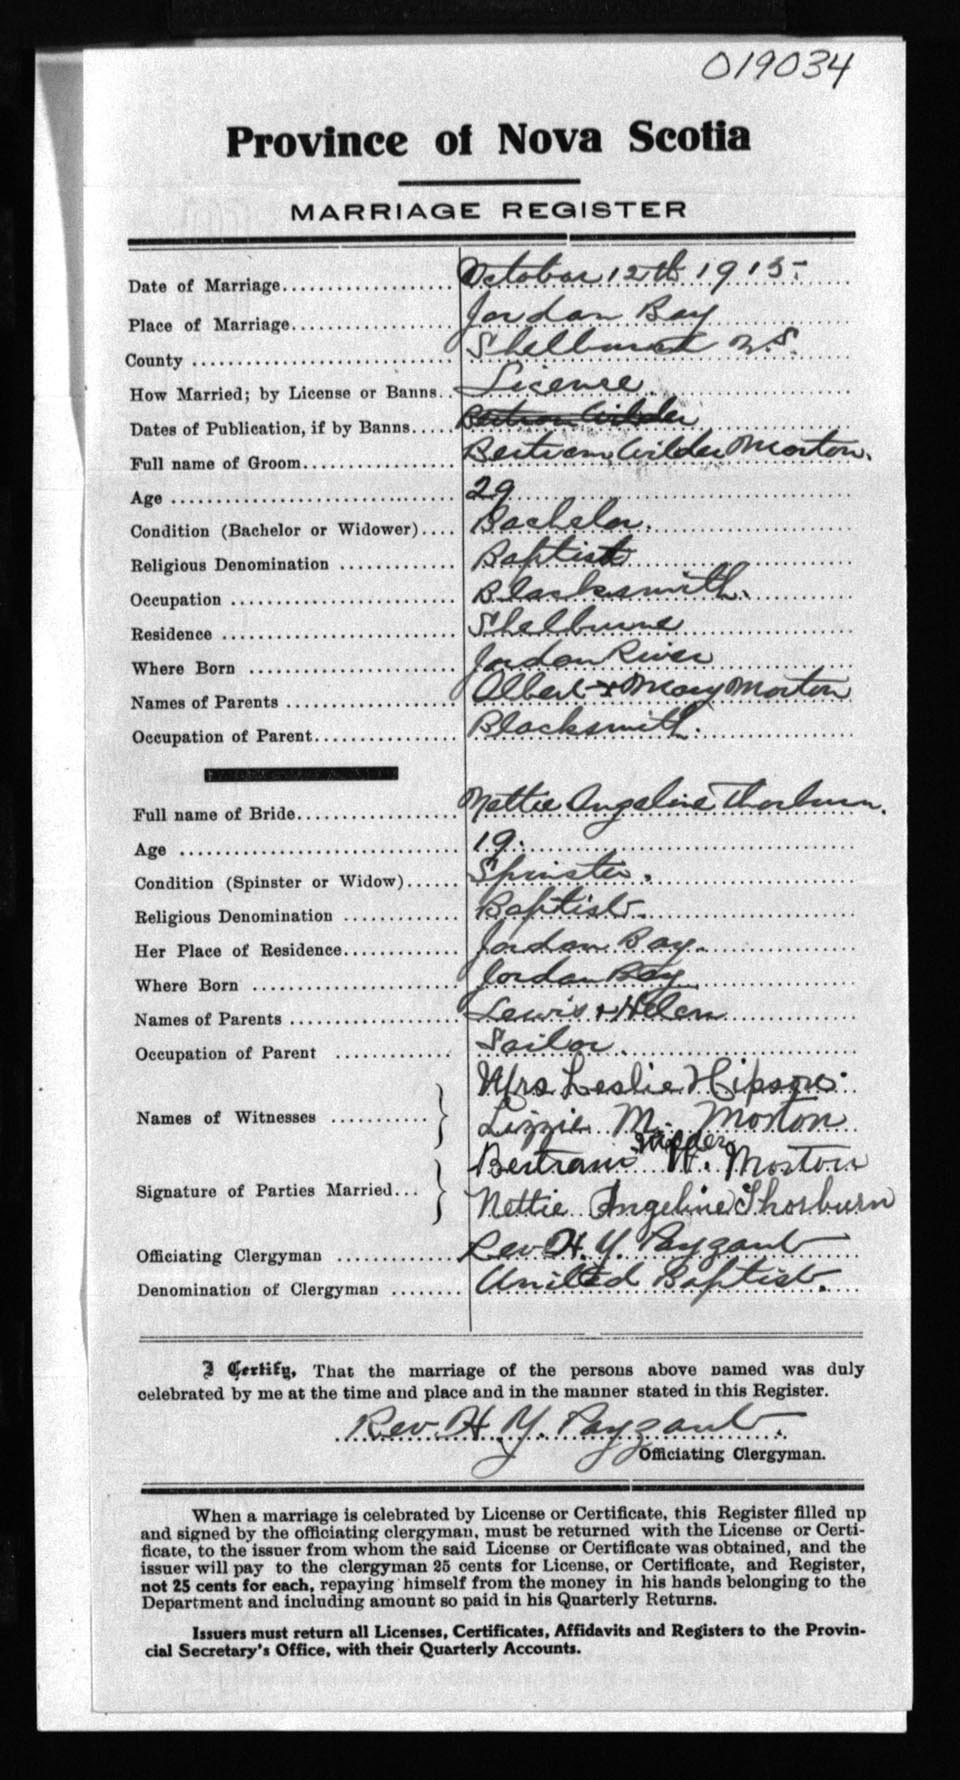 019034
Province of Nova Scotia
MARRIAGE REGISTER
Date of Marriage.................... October 12th 1915-
Place of Marriage................... Jordan Bay
County ............................ Shelburne N.S.
How Married; by License or Banns.. License
Dates of Publication, if by Banns..... Bertram Wilder
Full name of Groom.................. Bertram Wilder Morton.
Age ............................... 29
Condition (Bachelor or Widower).... Bachelor.
Religious Denomination .............. Baptist
Occupation .......................... Blacksmith.
Residence ........................... Shelburne
Where Born ........................ Jordan River
Names of Parents .................... Albert + Mary Morton
Occupation of Parent................. Blacksmith.
Full name of Bride................... Nettie Angeline Thorburn.
Age ............................... 19.
Condition (Spinster or Widow)...... Spinster.
Religious Denomination .............. Baptist.
Her Place of Residence.............. Jordan Bay.
Where Born ........................ Jordan Bay
Names of Parents .................... Lewis + Helen
Occupation of Parent .............. Sailor.
Mrs Leslie Hipson
Names of Witnesses ...........
Lizzie M. Morton
Wilder
Bertram W. Morton
Signature of Parties Married...
Nettie Angeline Thorburn
Officiating Clergyman .............. Rev H. Y. Payzant
Denomination of Clergyman ........ United Baptist.
I Certify, That the marriage of the persons above named was duly
celebrated by me at the time and place and in the manner stated in this Register.
Rev. H. Y. Payzant.
Officiating Clergyman.
When a marriage is celebrated by License or Certificate, this Register filled up
and signed by the officiating clergyman, must be returned with the License or Certi-
ficate, to the issuer from whom the said License or Certificate was obtained, and the
issuer will pay to the clergyman 25 cents for License, or Certificate, and Register,
not 25 cents for each, repaying himself from the money in his hands belonging to the
Department and including amount so paid in his Quarterly Returns.
Issuers must return all Licenses, Certificates, Affidavits and Registers to the Provin-
cial Secretary's Office, with their Quarterly Accounts.